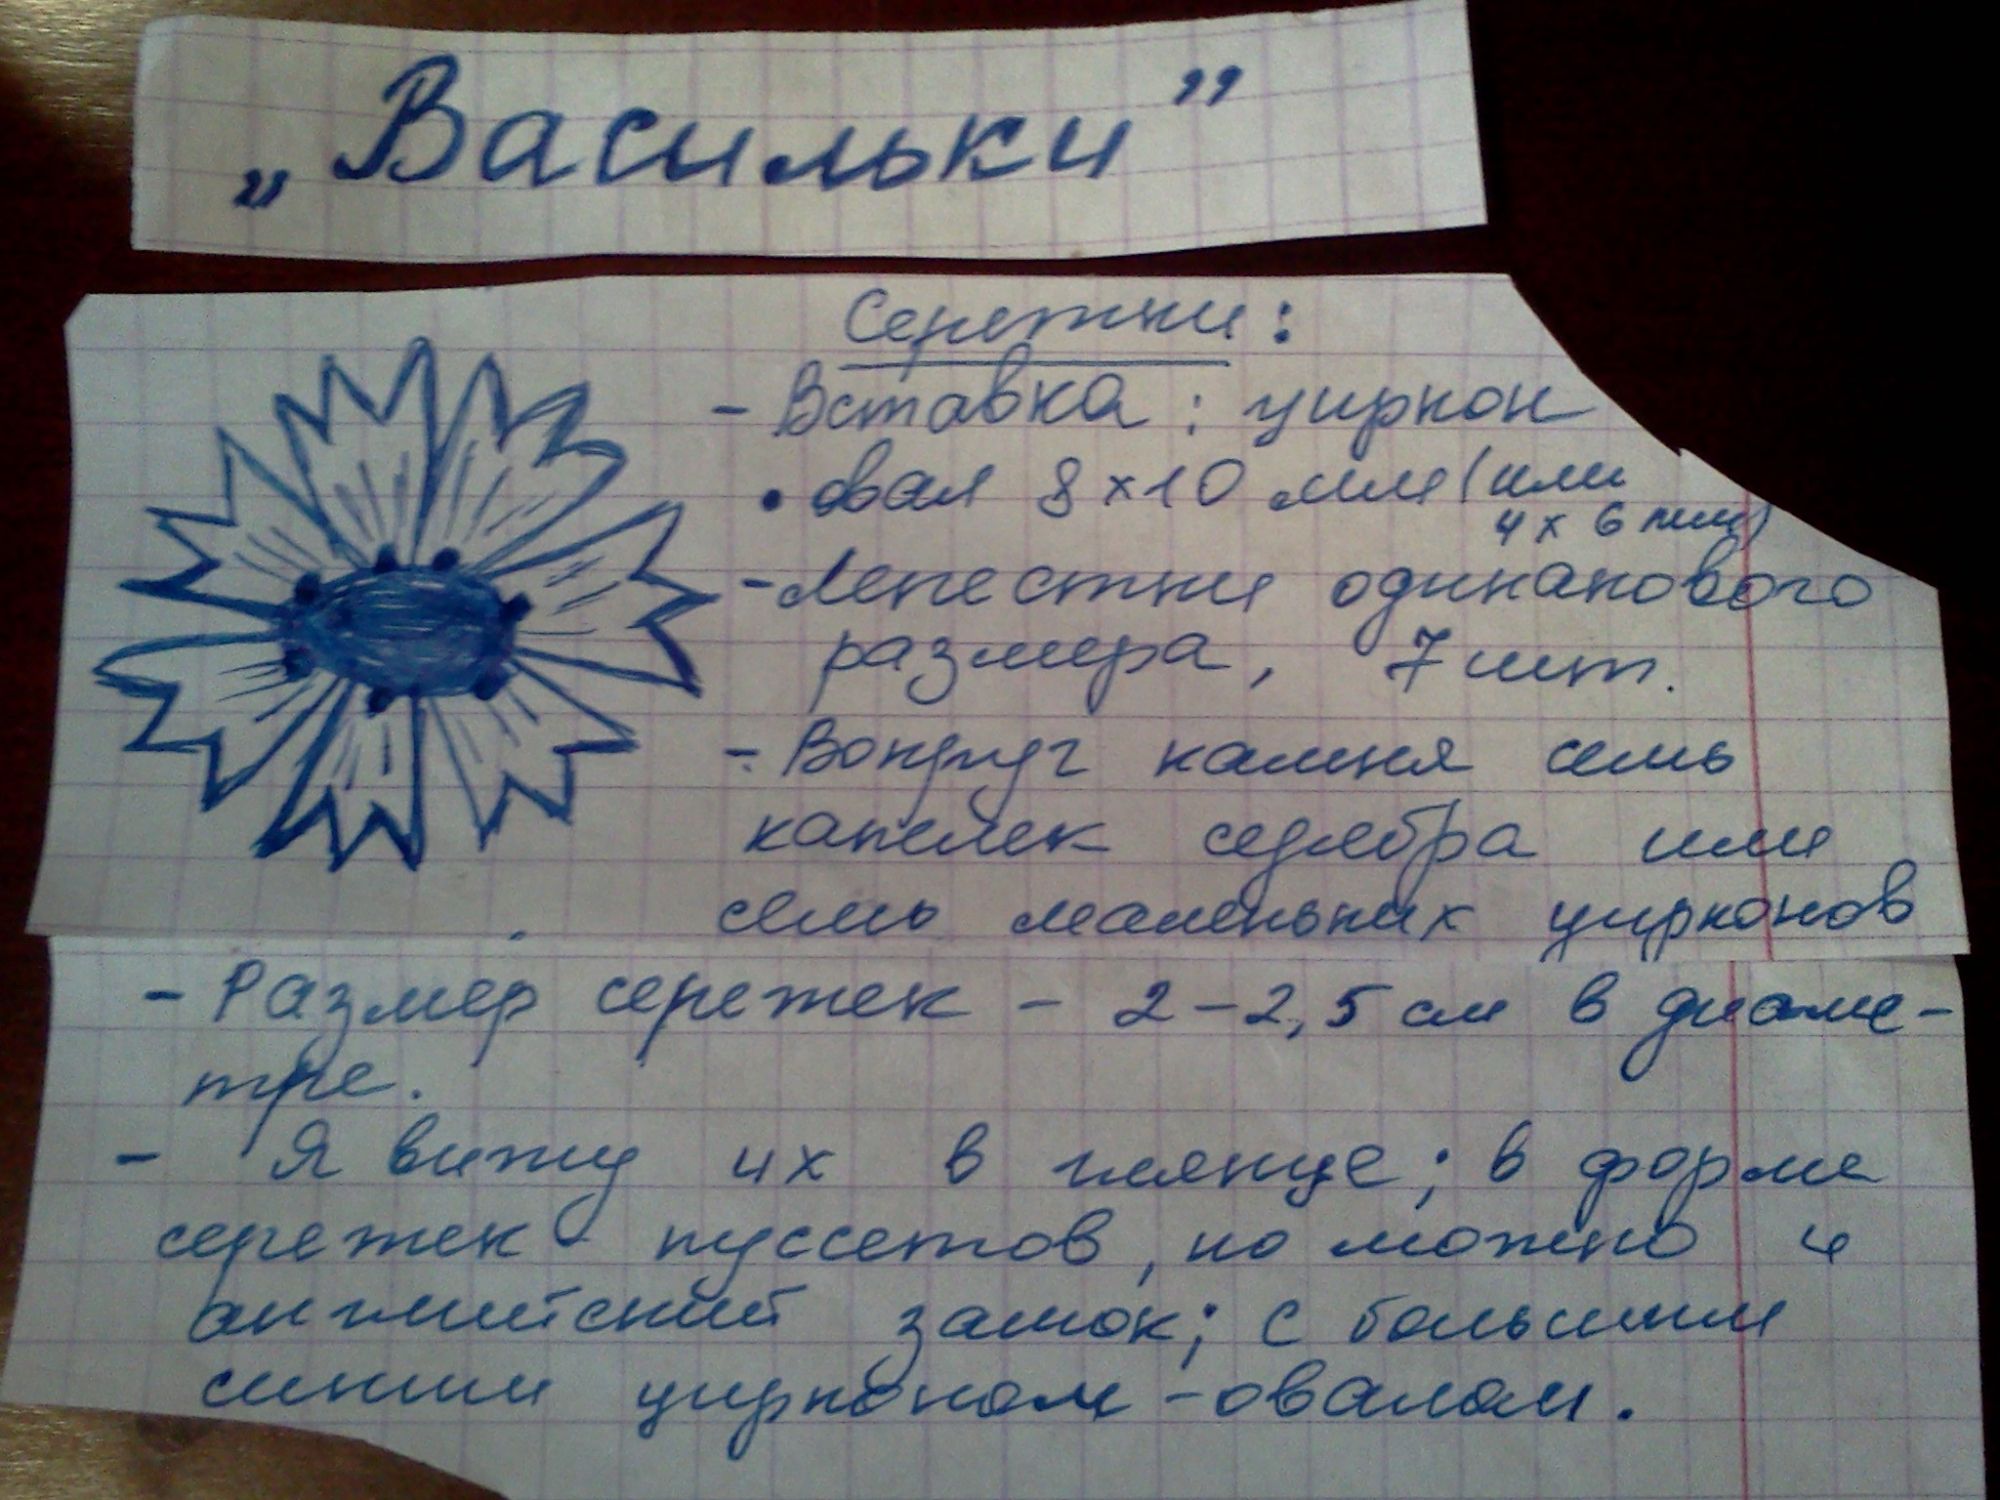 „Васильки”
Сережки:
- Вставка: циркон
• овал 8х10 мм (или
4х6 мм)
- Лепестки одинакового
размера, 7 шт.
- Вокруг камня семь
капелек серебра или
семь маленьких цирконов
- Размер сережек - 2-2,5 см в диаме-
тре.
- Я вижу их в глянце; в форме
сережек пуссетов, но можно и
английский замок; с большим
синим цирконом-овалом.